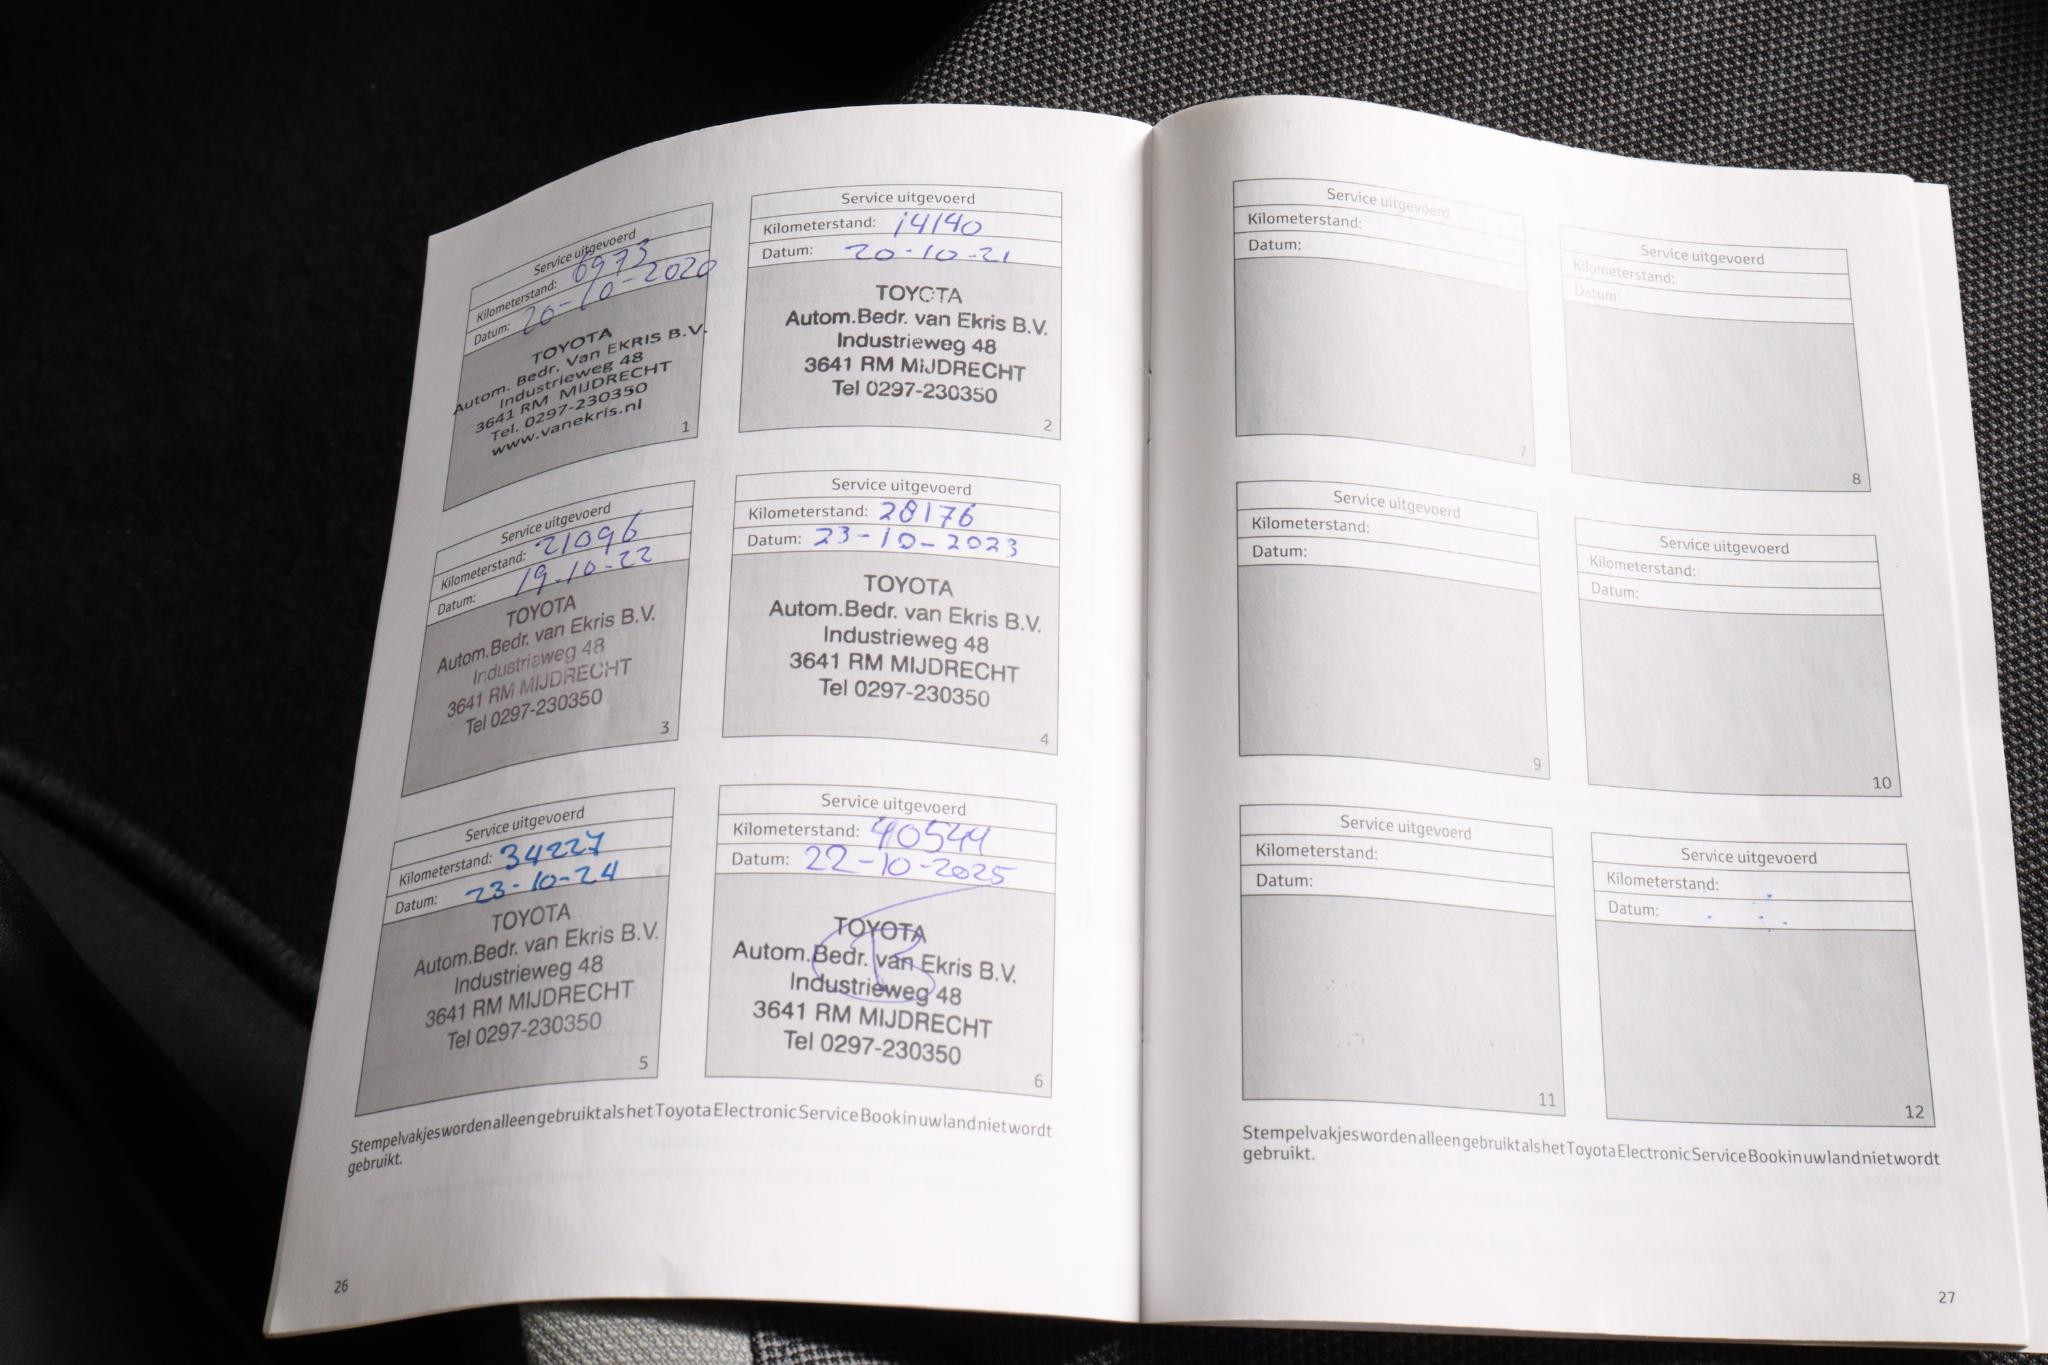 Service uitgevoerd
Kilometerstand: 6973
Datum: 20-10-2020
TOYOTA
Autom. Bedr. Van EKRIS B.V.
Industrieweg 48
3641 RM MIJDRECHT
Tel. 0297-230350
www.vanekris.nl
1
Service uitgevoerd
Kilometerstand: 14140
Datum: 20-10-21
TOYOTA
Autom.Bedr. van Ekris B.V.
Industrieweg 48
3641 RM MIJDRECHT
Tel 0297-230350
2
Service uitgevoerd
Kilometerstand: 21096
Datum: 19-10-22
TOYOTA
Autom.Bedr. van Ekris B.V.
Industrieweg 48
3641 RM MIJDRECHT
Tel 0297-230350
3
Service uitgevoerd
Kilometerstand: 28176
Datum: 23-10-2023
TOYOTA
Autom.Bedr. van Ekris B.V.
Industrieweg 48
3641 RM MIJDRECHT
Tel 0297-230350
4
Service uitgevoerd
Kilometerstand: 34227
Datum: 23-10-24
TOYOTA
Autom.Bedr. van Ekris B.V.
Industrieweg 48
3641 RM MIJDRECHT
Tel 0297-230350
5
Service uitgevoerd
Kilometerstand: 40544
Datum: 22-10-2025
TOYOTA
Autom.Bedr. van Ekris B.V.
Industrieweg 48
3641 RM MIJDRECHT
Tel 0297-230350
6
Stempelvakjes worden alleen gebruikt als het Toyota Electronic Service Book in uw land niet wordt
gebruikt.
26
Service uitgevoerd
Kilometerstand:
Datum:
7
Service uitgevoerd
Kilometerstand:
Datum:
8
Service uitgevoerd
Kilometerstand:
Datum:
9
Service uitgevoerd
Kilometerstand:
Datum:
10
Service uitgevoerd
Kilometerstand:
Datum:
11
Service uitgevoerd
Kilometerstand:
Datum:
12
Stempelvakjes worden alleen gebruikt als het Toyota Electronic Service Book in uw land niet wordt
gebruikt.
27